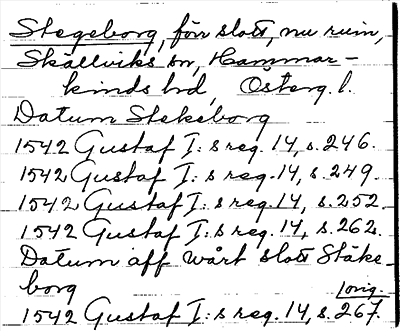 Stegeborg, förr slott, nu ruin,
Skällviks sn, Hammar-
kinds hd, Österg. l.
Datum Stekeborg
1542 Gustaf I:s reg. 14, s. 246.
1542 Gustaf I:s reg. 14, s. 249.
1542 Gustaf I:s reg. 14, s. 252.
1542 Gustaf I:s reg. 14, s. 262.
Datum aff wårt slott Stäke-
borg
orig.
1542 Gustaf I:s reg. 14, s. 267.